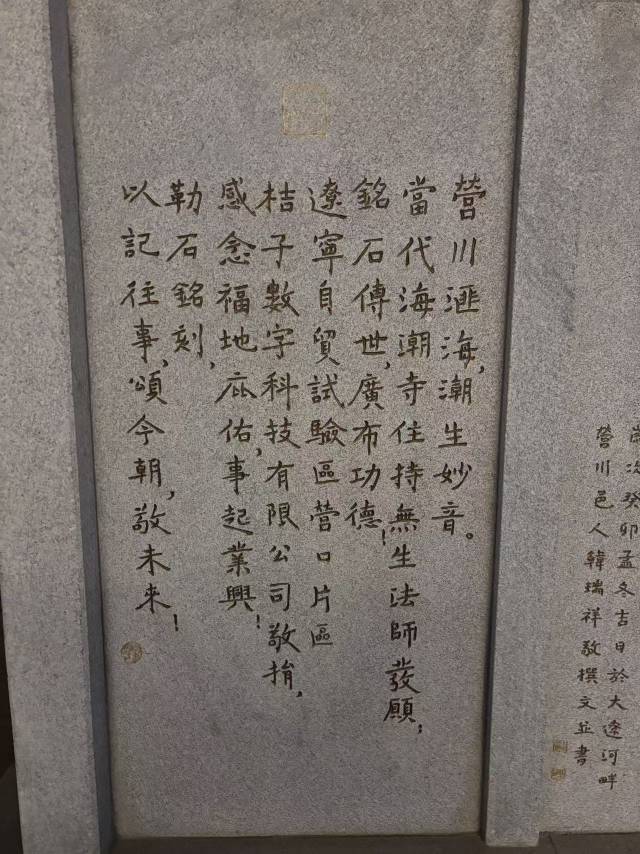 營川滙海,潮生妙音。
當代海潮寺住持無生法師發願;
銘石傳世,廣布功德!
遼寧自貿試驗區營口片區
桔子數字科技有限公司敬捐,
感念福地庇佑,事起業興!
勒石銘刻,
以記往事,頌今朝,敬未來!
歲次癸卯孟冬吉日於大遼河畔
營川邑人韓瑞祥敬撰文並書